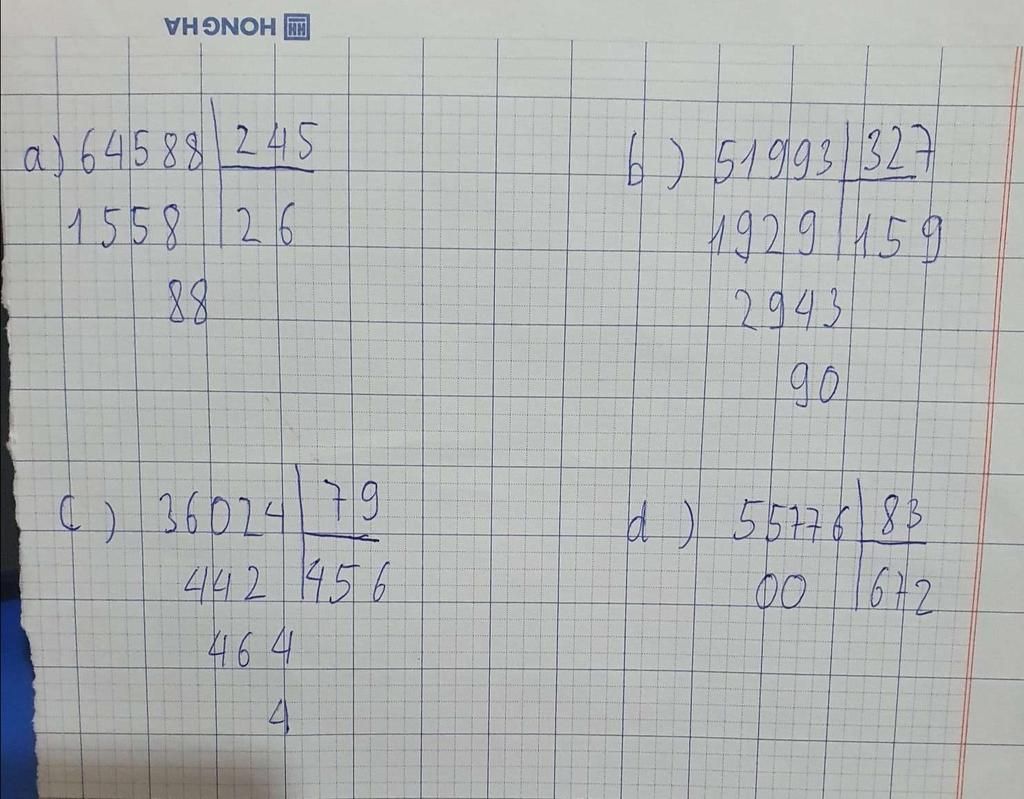 HONG HA
a) 64588 | 245
1558 | 26
88
b) 51993 | 327
1929 | 159
2943
90
c) 36024 | 79
442 | 456
464
4
d) 55776 | 83
00 | 672